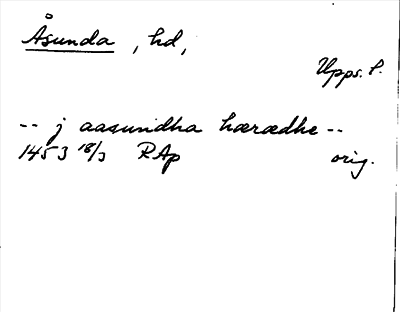 Åsunda, hd,
Upps. l.
-- j aasundha hærædhe --
1453 18/3 RAp orig.